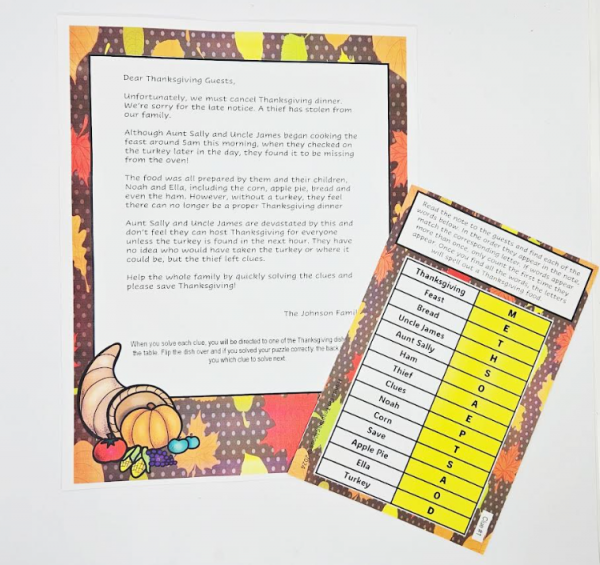 Dear Thanksgiving Guests,
Unfortunately, we must cancel Thanksgiving dinner.
We're sorry for the late notice. A thief has stolen from
our family.
Although Aunt Sally and Uncle James began cooking the
feast around 5am this morning, when they checked on
the turkey later in the day, they found it to be missing
from the oven!
The food was all prepared by them and their children,
Noah and Ella, including the corn, apple pie, bread and
even the ham. However, without a turkey, they feel
there can no longer be a proper Thanksgiving dinner
Aunt Sally and Uncle James are devastated by this and
don't feel they can host Thanksgiving for everyone
unless the turkey is found in the next hour. They have
no idea who would have taken the turkey or where it
could be, but the thief left clues.
Help the whole family by quickly solving the clues and
please save Thanksgiving!
The Johnson Famil
When you solve each clue, you will be directed to one of the Thanksgiving dish
the table. Flip the dish over and if you solved your puzzle correctly, the back
you which clue to solve next.
Read the note to the guests and find each of the
words below. In the order they appear in the note,
match the corresponding letters. If words appear
more than once, only count the first time they
appear. Once you find all the words, the letters
will spell out a Thanksgiving food.
Thanksgiving M
Feast E
Bread T
Uncle James H
Aunt Sally S
Ham O
Thief A
Clues E
Noah P
Corn T
Save S
Apple Pie A
Ella O
Turkey D
Clue #1